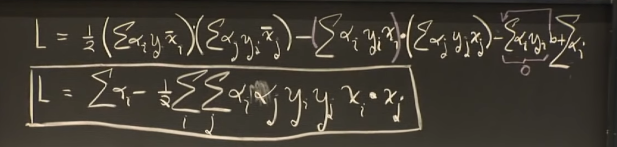 L = ½ (Σαᵢyᵢx̄ᵢ)(Σαⱼyⱼx̄ⱼ) − (Σαᵢyᵢxᵢ)·(Σαⱼyⱼxⱼ) − Σαᵢyᵢb + Σαᵢ
0
L = Σαᵢ − ½ Σᵢ Σⱼ αᵢ αⱼ yᵢ yⱼ xᵢ · xⱼ